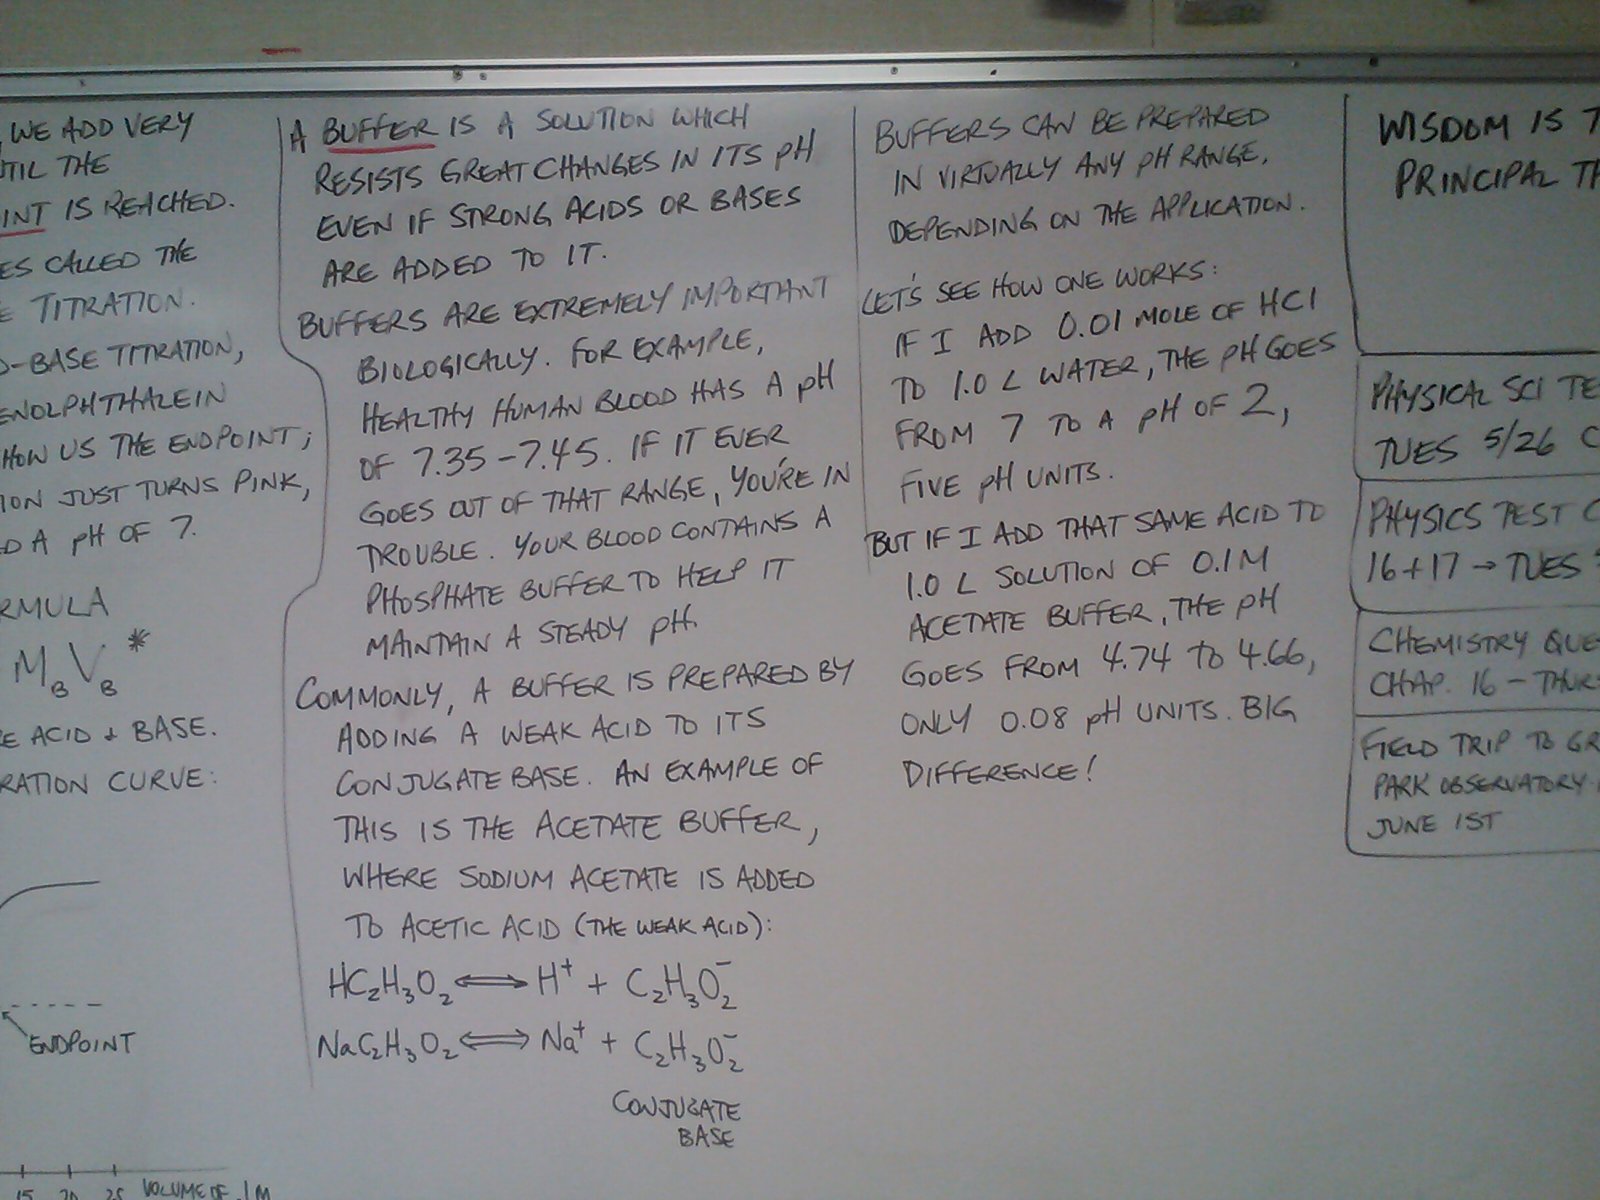 WE ADD VERY
THE
IS REACHED.
CALLED THE
TITRATION.
-BASE TITRATION,
US THE ENDPOINT;
JUST TURNS PINK,
A pH OF 7.
M_B V_B *
ACID + BASE.
CURVE:
ENDPOINT
15 20 25 VOLUME OF .1 M
A BUFFER IS A SOLUTION WHICH
RESISTS GREAT CHANGES IN ITS pH
EVEN IF STRONG ACIDS OR BASES
ARE ADDED TO IT.
BUFFERS ARE EXTREMELY IMPORTANT
BIOLOGICALLY. FOR EXAMPLE,
HEALTHY HUMAN BLOOD HAS A pH
OF 7.35-7.45. IF IT EVER
GOES OUT OF THAT RANGE, YOU'RE IN
TROUBLE. YOUR BLOOD CONTAINS A
PHOSPHATE BUFFER TO HELP IT
MAINTAIN A STEADY pH.
COMMONLY, A BUFFER IS PREPARED BY
ADDING A WEAK ACID TO ITS
CONJUGATE BASE. AN EXAMPLE OF
THIS IS THE ACETATE BUFFER,
WHERE SODIUM ACETATE IS ADDED
TO ACETIC ACID (THE WEAK ACID):
HC₂H₃O₂ ⇌ H⁺ + C₂H₃O₂⁻
NaC₂H₃O₂ ⇌ Na⁺ + C₂H₃O₂⁻
CONJUGATE
BASE
BUFFERS CAN BE PREPARED
IN VIRTUALLY ANY pH RANGE,
DEPENDING ON THE APPLICATION.
LET'S SEE HOW ONE WORKS:
IF I ADD 0.01 MOLE OF HCl
TO 1.0 L WATER, THE pH GOES
FROM 7 TO A pH OF 2,
FIVE pH UNITS.
BUT IF I ADD THAT SAME ACID TO
1.0 L SOLUTION OF 0.1M
ACETATE BUFFER, THE pH
GOES FROM 4.74 TO 4.66,
ONLY 0.08 pH UNITS. BIG
DIFFERENCE!
WISDOM IS
PRINCIPAL
PHYSICAL SCI
TUES 5/26
PHYSICS TEST
16+17 → TUES
CHEMISTRY
CHAP. 16 -
FIELD TRIP TO
PARK OBSERVATORY
JUNE 1ST